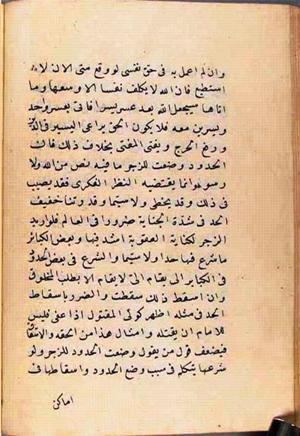 وان لم اعمل به فى حق نفسى لو وقع منى الا ان لا
استطيع فان الله لا يكلف نفسا الا وسعها وما
اتاها سيجعل الله بعد عسر يسرا فاتى بعسر واحد
ويسرين معه فلا يكون الحق يراعى اليسير فى الدين
ورفع الحرج ويفتى المفتى بخلاف ذلك فان
الحدود وضعت للزجر ما فيه نص من الله ولا
رسوله وانما يقتضيه النظر الفكرى فقد يصيب
فى ذلك وقد يخطى ولا سيما وقد رأينا تخفيف
الحد فى شدة الجناية ضررا فى العالم فلو اريد
الزجر لكانت العقوبة اشد فيها وبعض الكبائر
ما شرع فيها حد اولا سيما والشرع فى بعض الحدود
فى الكبائر التى يقام التى لا يقام الا بطلب المخلوق
وان اسقط ذلك سقطت والضرر باسقاط
الحد فى مثله اظهر كولى المقتول اذا عفى فليس
للامام ان يقتله وامثال هذا من الحقد والانتقا
فيضعف قول من يقول وضعت الحدود للزجر ولو
شرعنا نتكلم فى سبب وضع الحدود واسقاطها فى
اماكن